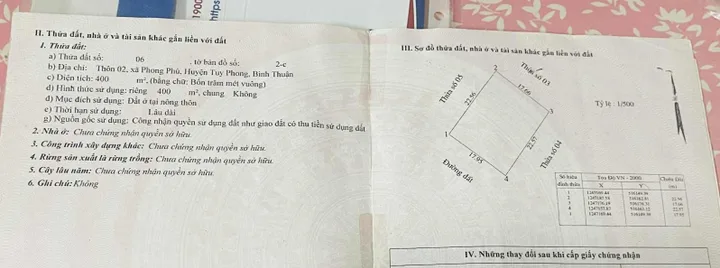 1900
https
II. Thửa đất, nhà ở và tài sản khác gắn liền với đất
1. Thửa đất:
a) Thửa đất số: 06 , tờ bản đồ số: 2-c
b) Địa chỉ: Thôn 02, xã Phong Phú, Huyện Tuy Phong, Bình Thuận
c) Diện tích: 400 m², (bằng chữ: Bốn trăm mét vuông)
d) Hình thức sử dụng: riêng 400 m², chung Không
đ) Mục đích sử dụng: Đất ở tại nông thôn
e) Thời hạn sử dụng: Lâu dài
g) Nguồn gốc sử dụng: Công nhận quyền sử dụng đất như giao đất có thu tiền sử dụng đất
2. Nhà ở: Chưa chứng nhận quyền sở hữu.
3. Công trình xây dựng khác: Chưa chứng nhận quyền sở hữu.
4. Rừng sản xuất là rừng trồng: Chưa chứng nhận quyền sở hữu.
5. Cây lâu năm: Chưa chứng nhận quyền sở hữu.
6. Ghi chú: Không
III. Sơ đồ thửa đất, nhà ở và tài sản khác gắn liền với đất
Thửa số 05
2
Thửa số 03
22.56
17.66
3
Tỷ lệ: 1/500
1
22.57
Thửa số 04
17.95
4
Đường đất
Số hiệu đỉnh thửa
Tọa Độ VN - 2000
Chiều dài (m)
X
Y
1
2
3
4
1
17.66
22.57
17.95
IV. Những thay đổi sau khi cấp giấy chứng nhận